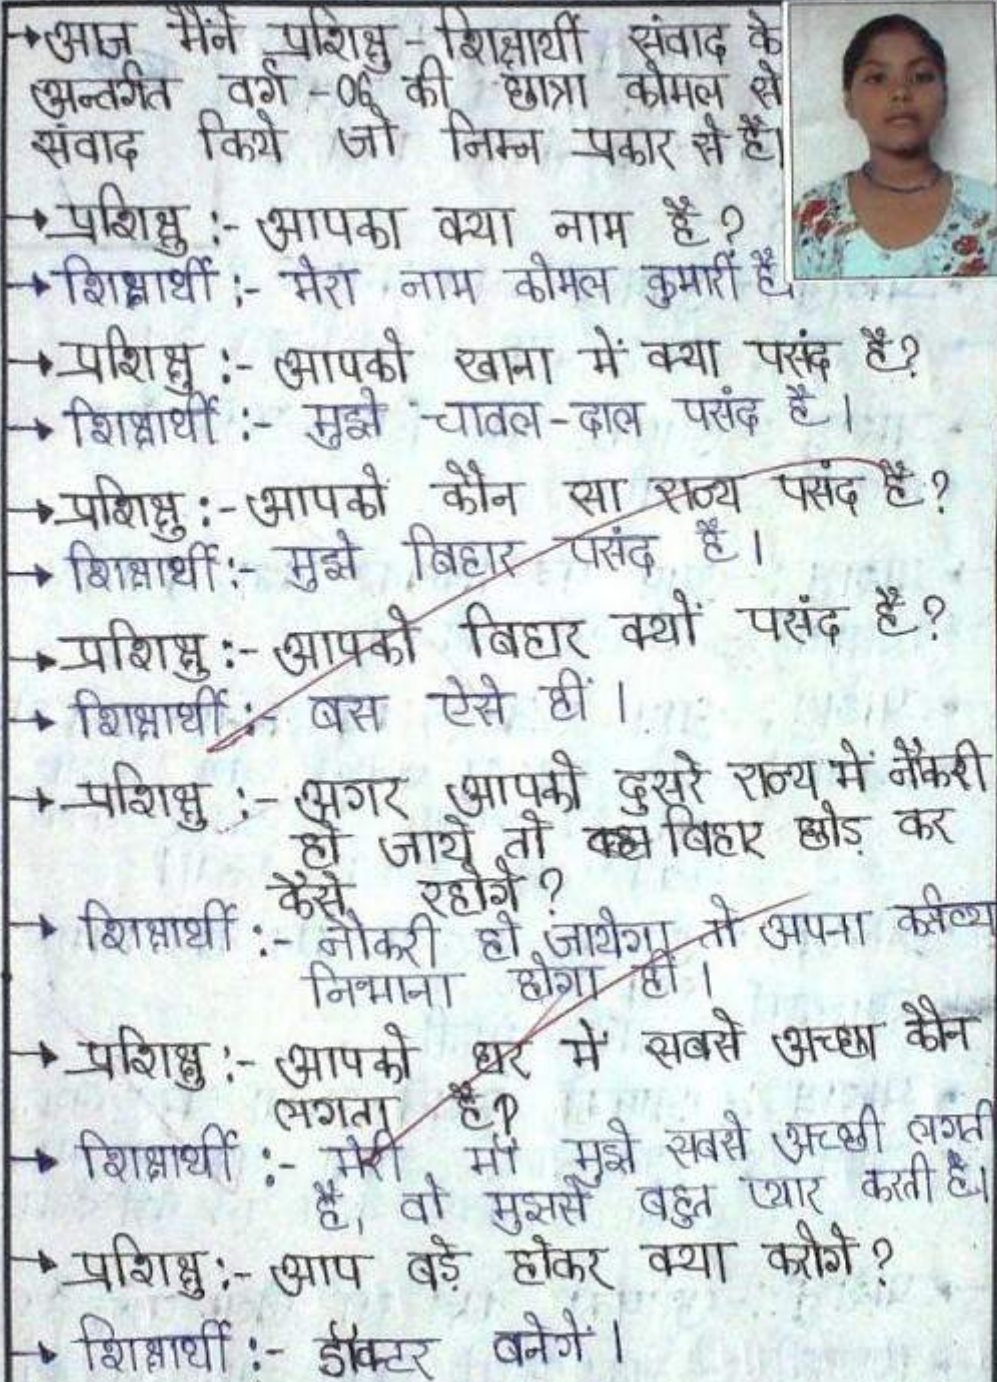 →आज मैंने प्रशिक्षु - शिक्षार्थी संवाद के
अन्तर्गत वर्ग -06 की छात्रा कोमल से
संवाद किये जो निम्न प्रकार से है।
→ प्रशिक्षु :- आपका क्या नाम है ?
→ शिक्षार्थी :- मेरा नाम कोमल कुमारी है
→ प्रशिक्षु :- आपको खाना में क्या पसंद है ?
→ शिक्षार्थी :- मुझे चावल-दाल पसंद है ।
→ प्रशिक्षु :- आपको कौन सा राज्य पसंद है ?
→ शिक्षार्थी :- मुझे बिहार पसंद है ।
→ प्रशिक्षु :- आपको बिहार क्यों पसंद है ?
→ शिक्षार्थी :- बस ऐसे हीं ।
→ प्रशिक्षु :- अगर आपको दुसरे राज्य में नौकरी
हो जाये तो बिहार छोड़ कर
कैसे रहोगे ?
→ शिक्षार्थी :- नौकरी हो जायेगा तो अपना कर्तव्य
निभाना होगा हीं ।
→ प्रशिक्षु :- आपको घर में सबसे अच्छा कौन
लगता है ?
→ शिक्षार्थी :- मेरी माँ मुझे सबसे अच्छी लगती
है, वो मुझसे बहुत प्यार करती है।
→ प्रशिक्षु :- आप बड़े होकर क्या करोगे ?
→ शिक्षार्थी :- डॉक्टर बनेगें ।